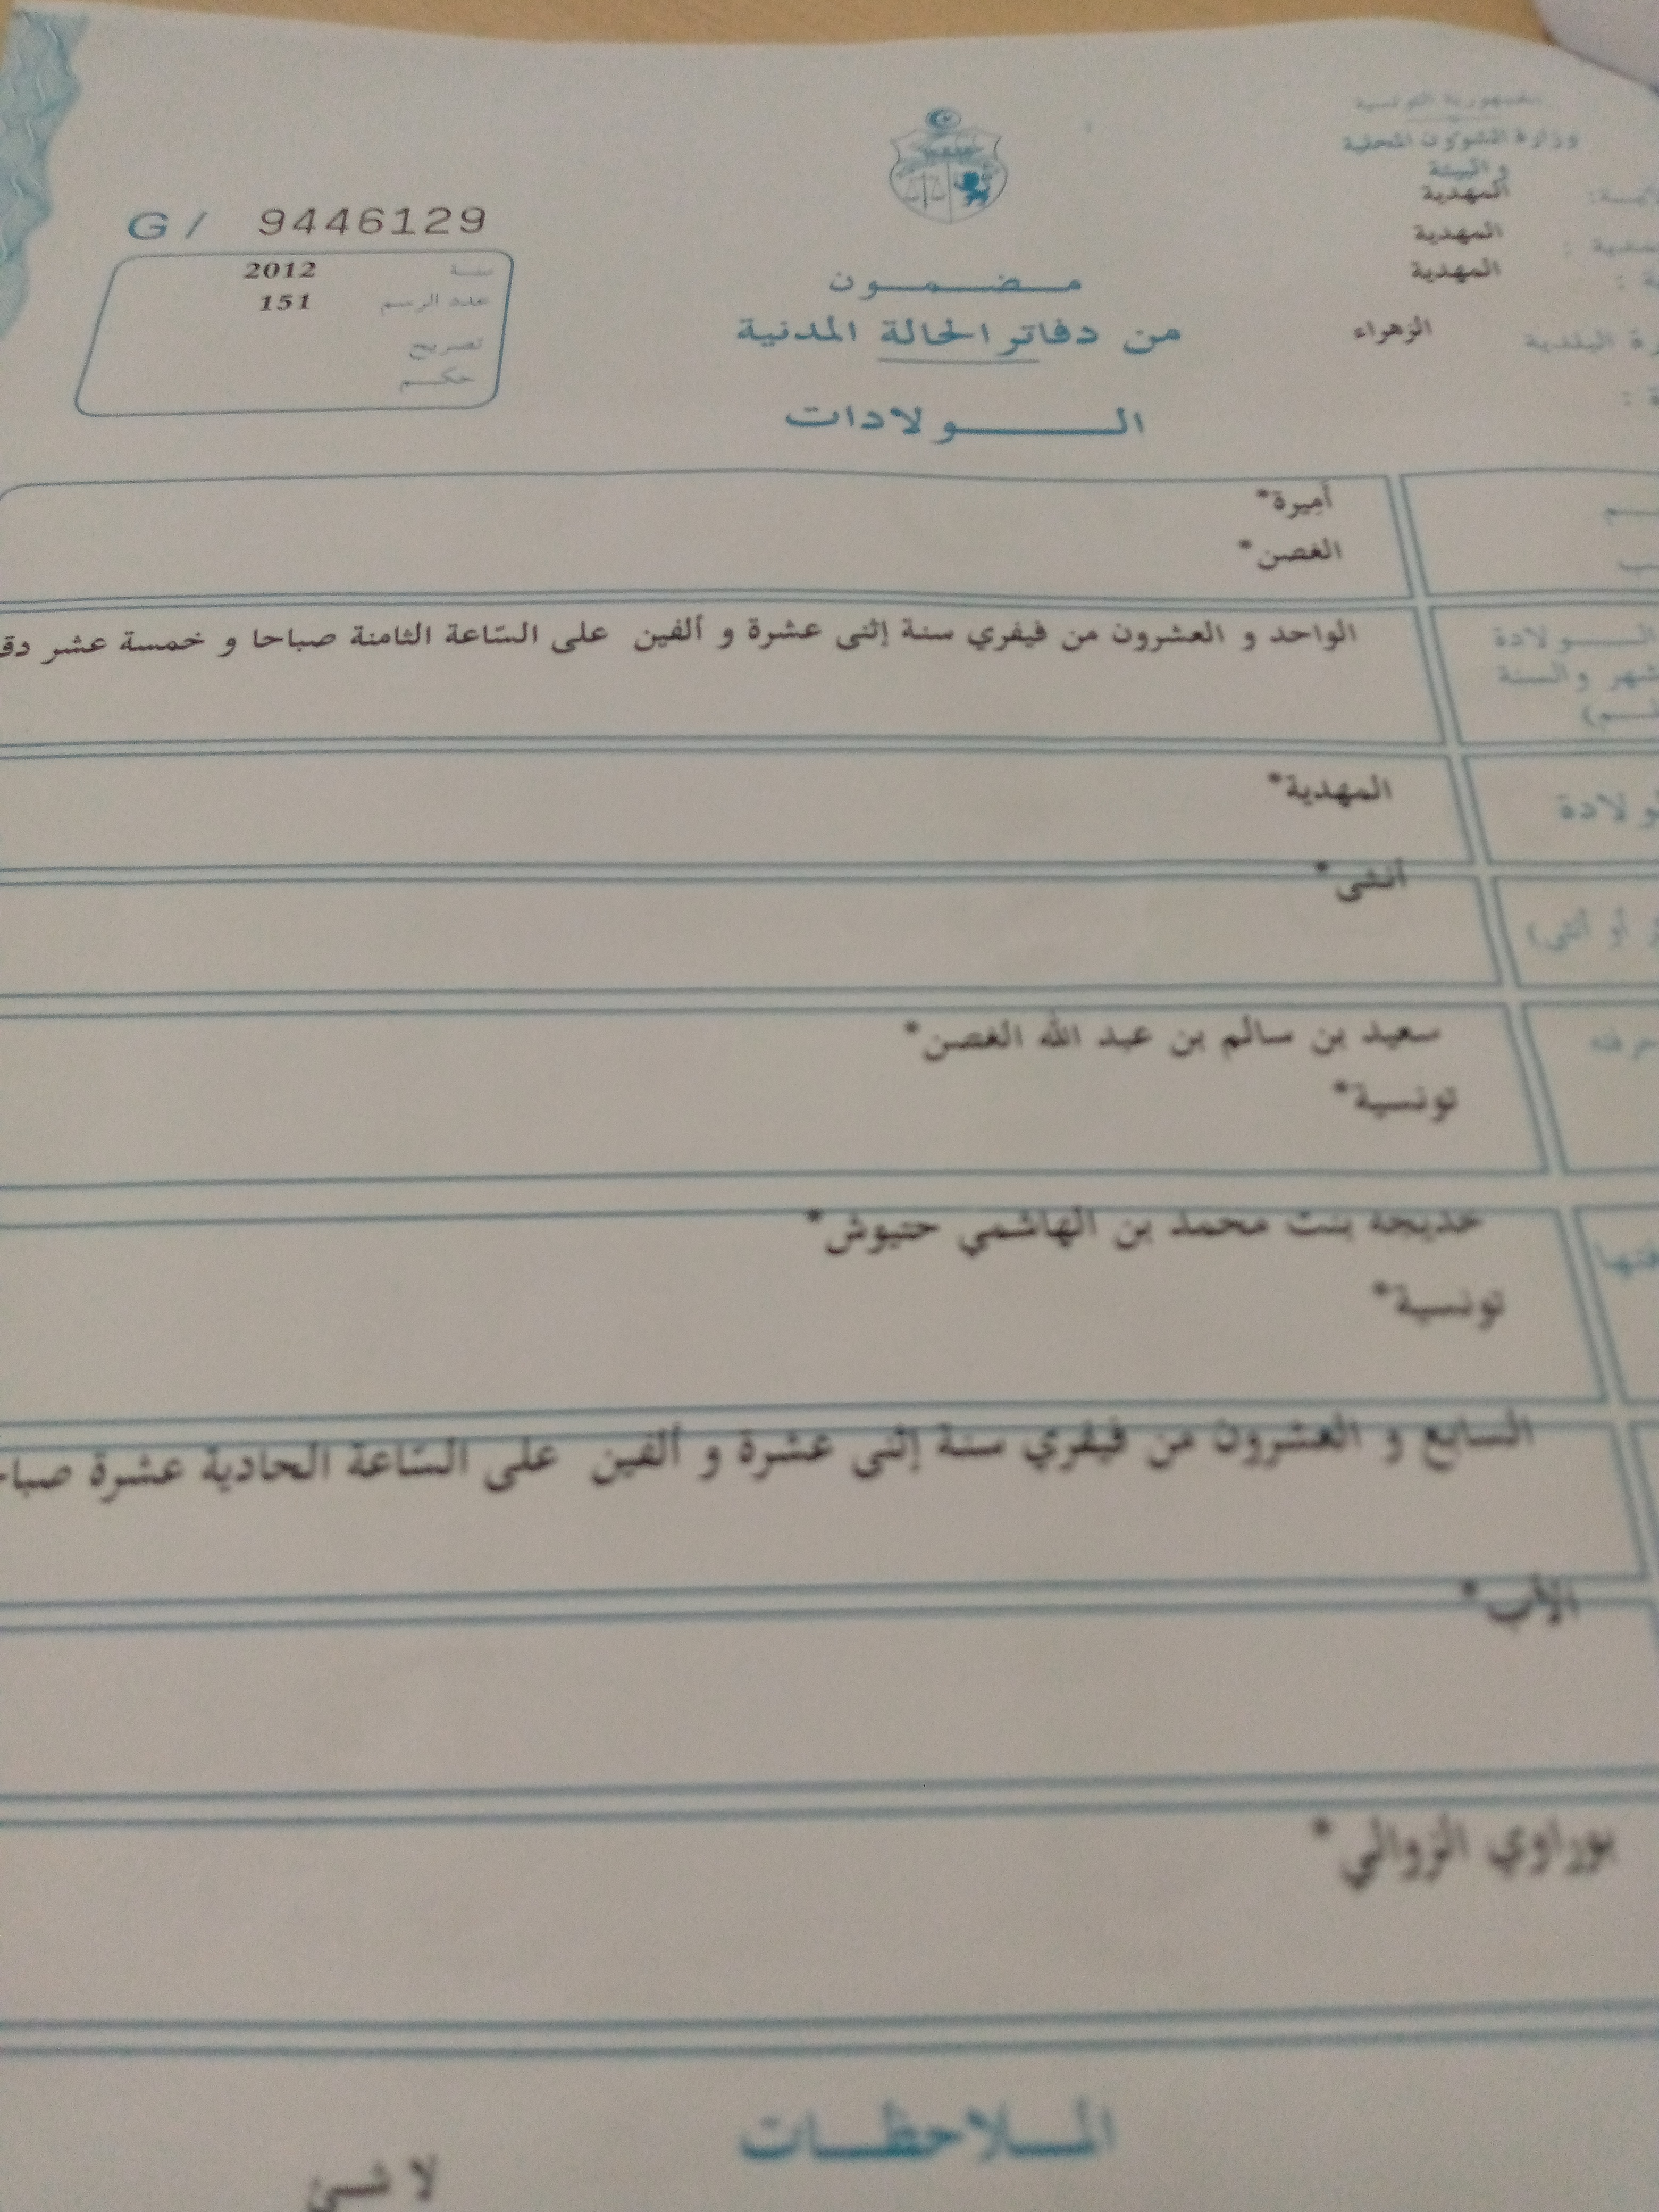 الجمهورية التونسية
وزارة الشؤون المحلية
والبيئة
المهدية
المهدية
المهدية
الزهراء
البلدية
مضمون
من دفاتر الحالة المدنية
الولادات
G/ 9446129
سنة 2012
عدد الرسم 151
تصريح
حكم
أميرة*
الغصن*
الولادة
والسنة
الواحد و العشرون من فيفري سنة إثنى عشرة و ألفين على السّاعة الثامنة صباحا و خمسة عشر دق
المهدية*
أو أنثى)
أنثى*
سعيد بن سالم بن عبد الله الغصن*
تونسية*
خديجة بنت محمد بن الهاشمي حتيوش*
تونسية*
السابع و العشرون من فيفري سنة إثنى عشرة و ألفين على السّاعة الحادية عشرة صبا
الأب*
بوراوي الزوالي*
الملاحظات
لا شئ